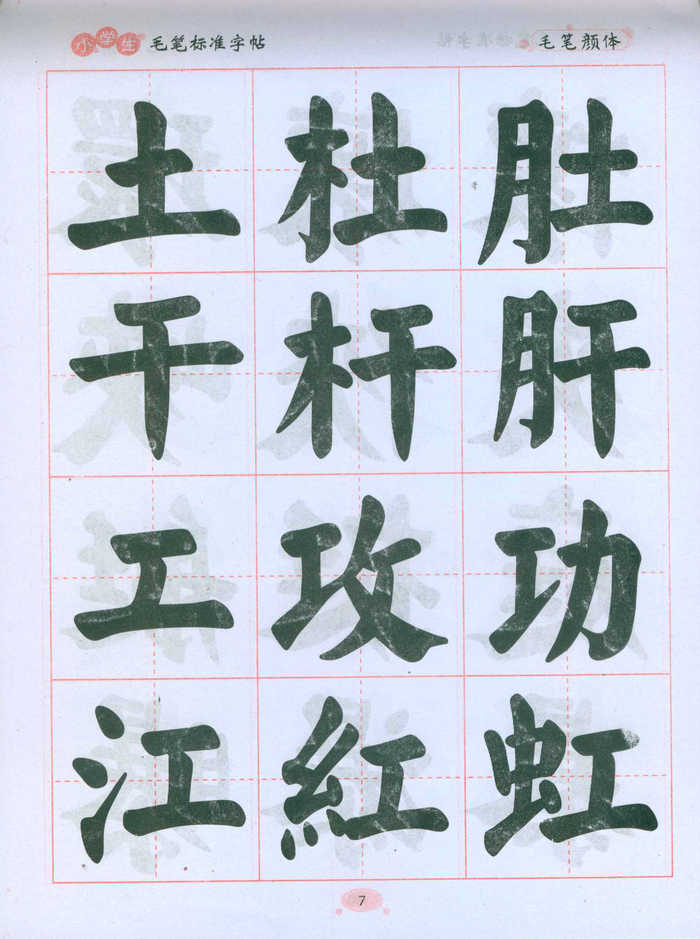 小学生 毛笔标准字帖 毛笔颜体
土 杜 肚
干 杆 肝
工 攻 功
江 紅 虹
7